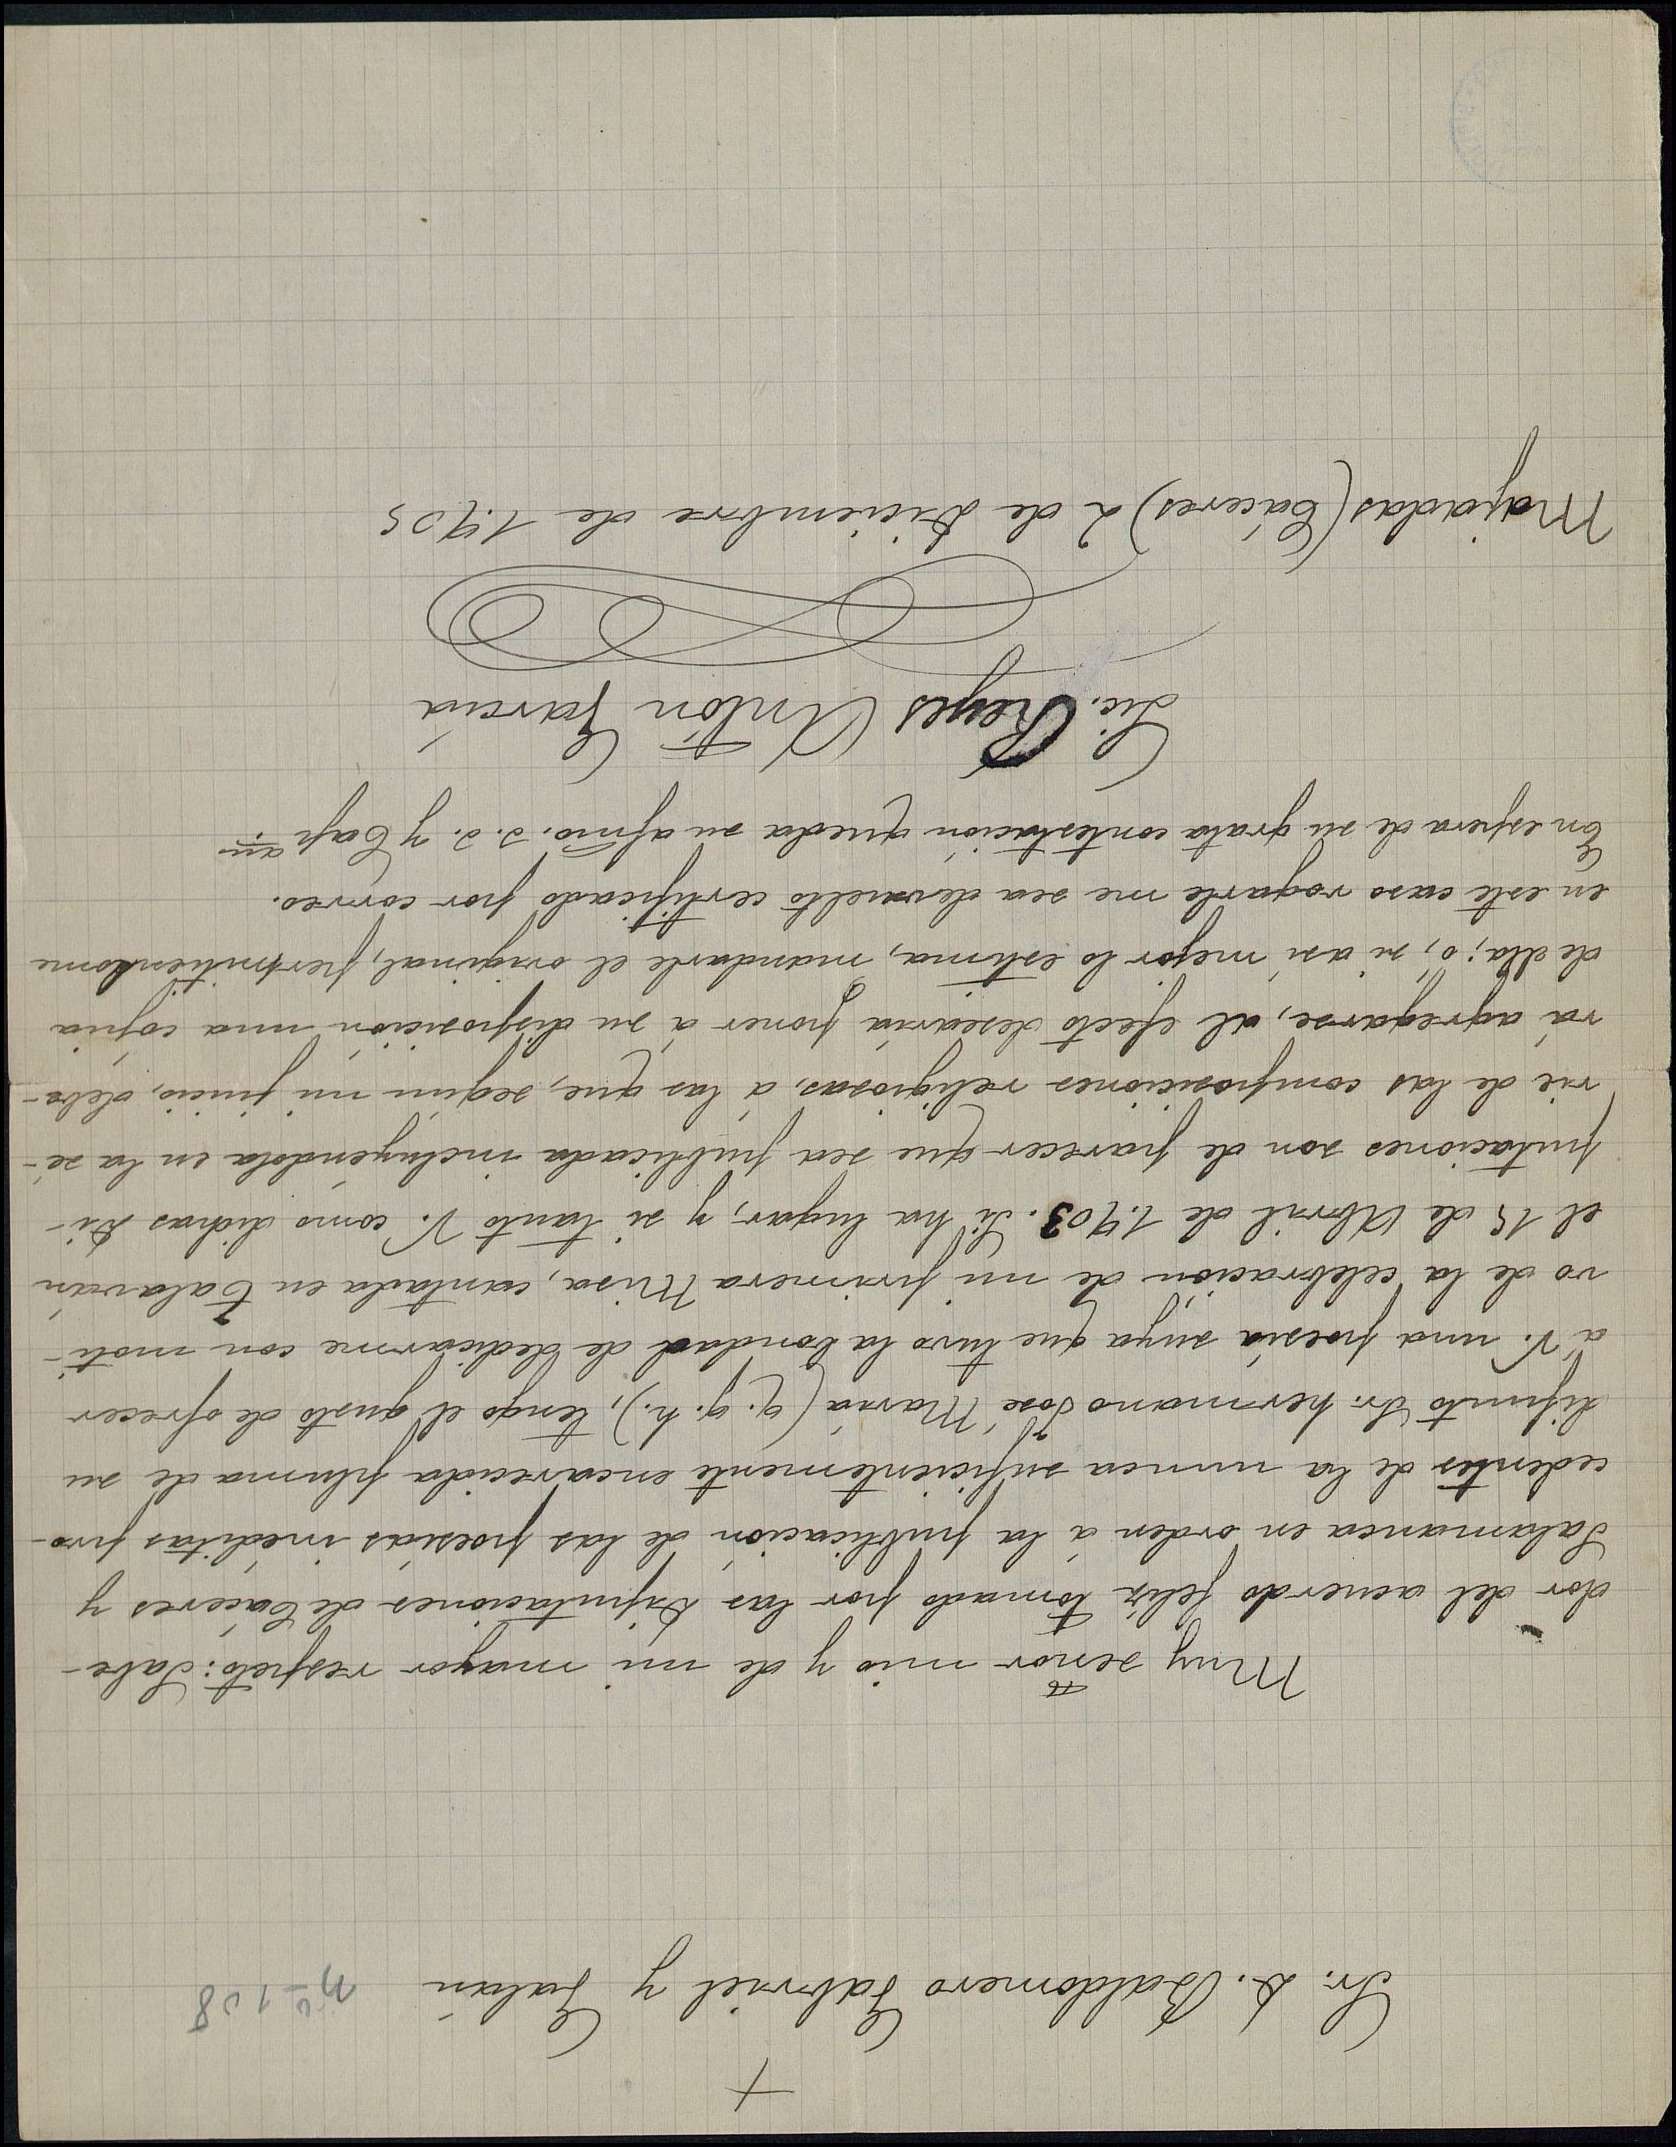 +
Sr. D. Baldomero Gabriel y Galán
nº 108
Muy señor mio y de mi mayor respeto: Sabe-
dor del acuerdo felíz tomado por las Diputaciones de Cáceres y
Salamanca en orden á la publicación de las poesías inéditas pro-
cedentes de la nunca suficientemente encarecida pluma de su
difunto Sr. hermano José María (q. g. h.), tengo el gusto de ofrecer
á V. una poesía suya que tuvo la bondad de dedicarme con moti-
vo de la celebración de mi primera Misa, cantada en Talaván
el 15 de Abril de 1.903. Si ha lugar, y si tanto V. como dichas Di-
putaciones son de parecer que sea publicada incluyéndola en la sé-
rie de las composiciones religiosas, á las que, según mi juicio, debe-
rá agregarse, al efecto desearía poner á su disposición una cópia
de ella; ó, si así mejor lo estima, mandarle el original, permitiendome
en este caso rogarle me sea devuelto certificado por correo.
En espera de su grata contestación queda su afmo. s. s. y Cap
Lic. Reyes Antón García
Majadas (Cáceres) 2 de Diciembre de 1.905